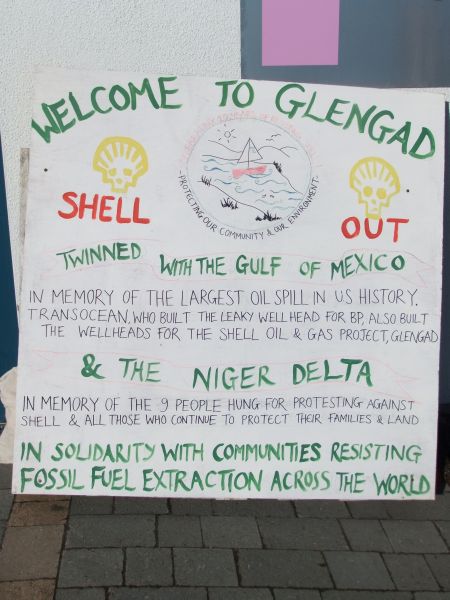 WELCOME TO GLENGAD
SHELL
OUT
PROTECTING OUR COMMUNITY & OUR ENVIRONMENT
TWINNED WITH THE GULF OF MEXICO
IN MEMORY OF THE LARGEST OIL SPILL IN US HISTORY.
TRANSOCEAN, WHO BUILT THE LEAKY WELLHEAD FOR BP, ALSO BUILT
THE WELLHEADS FOR THE SHELL OIL & GAS PROJECT, GLENGAD
& THE NIGER DELTA
IN MEMORY OF THE 9 PEOPLE HUNG FOR PROTESTING AGAINST
SHELL & ALL THOSE WHO CONTINUE TO PROTECT THEIR FAMILIES & LAND
IN SOLIDARITY WITH COMMUNITIES RESISTING
FOSSIL FUEL EXTRACTION ACROSS THE WORLD